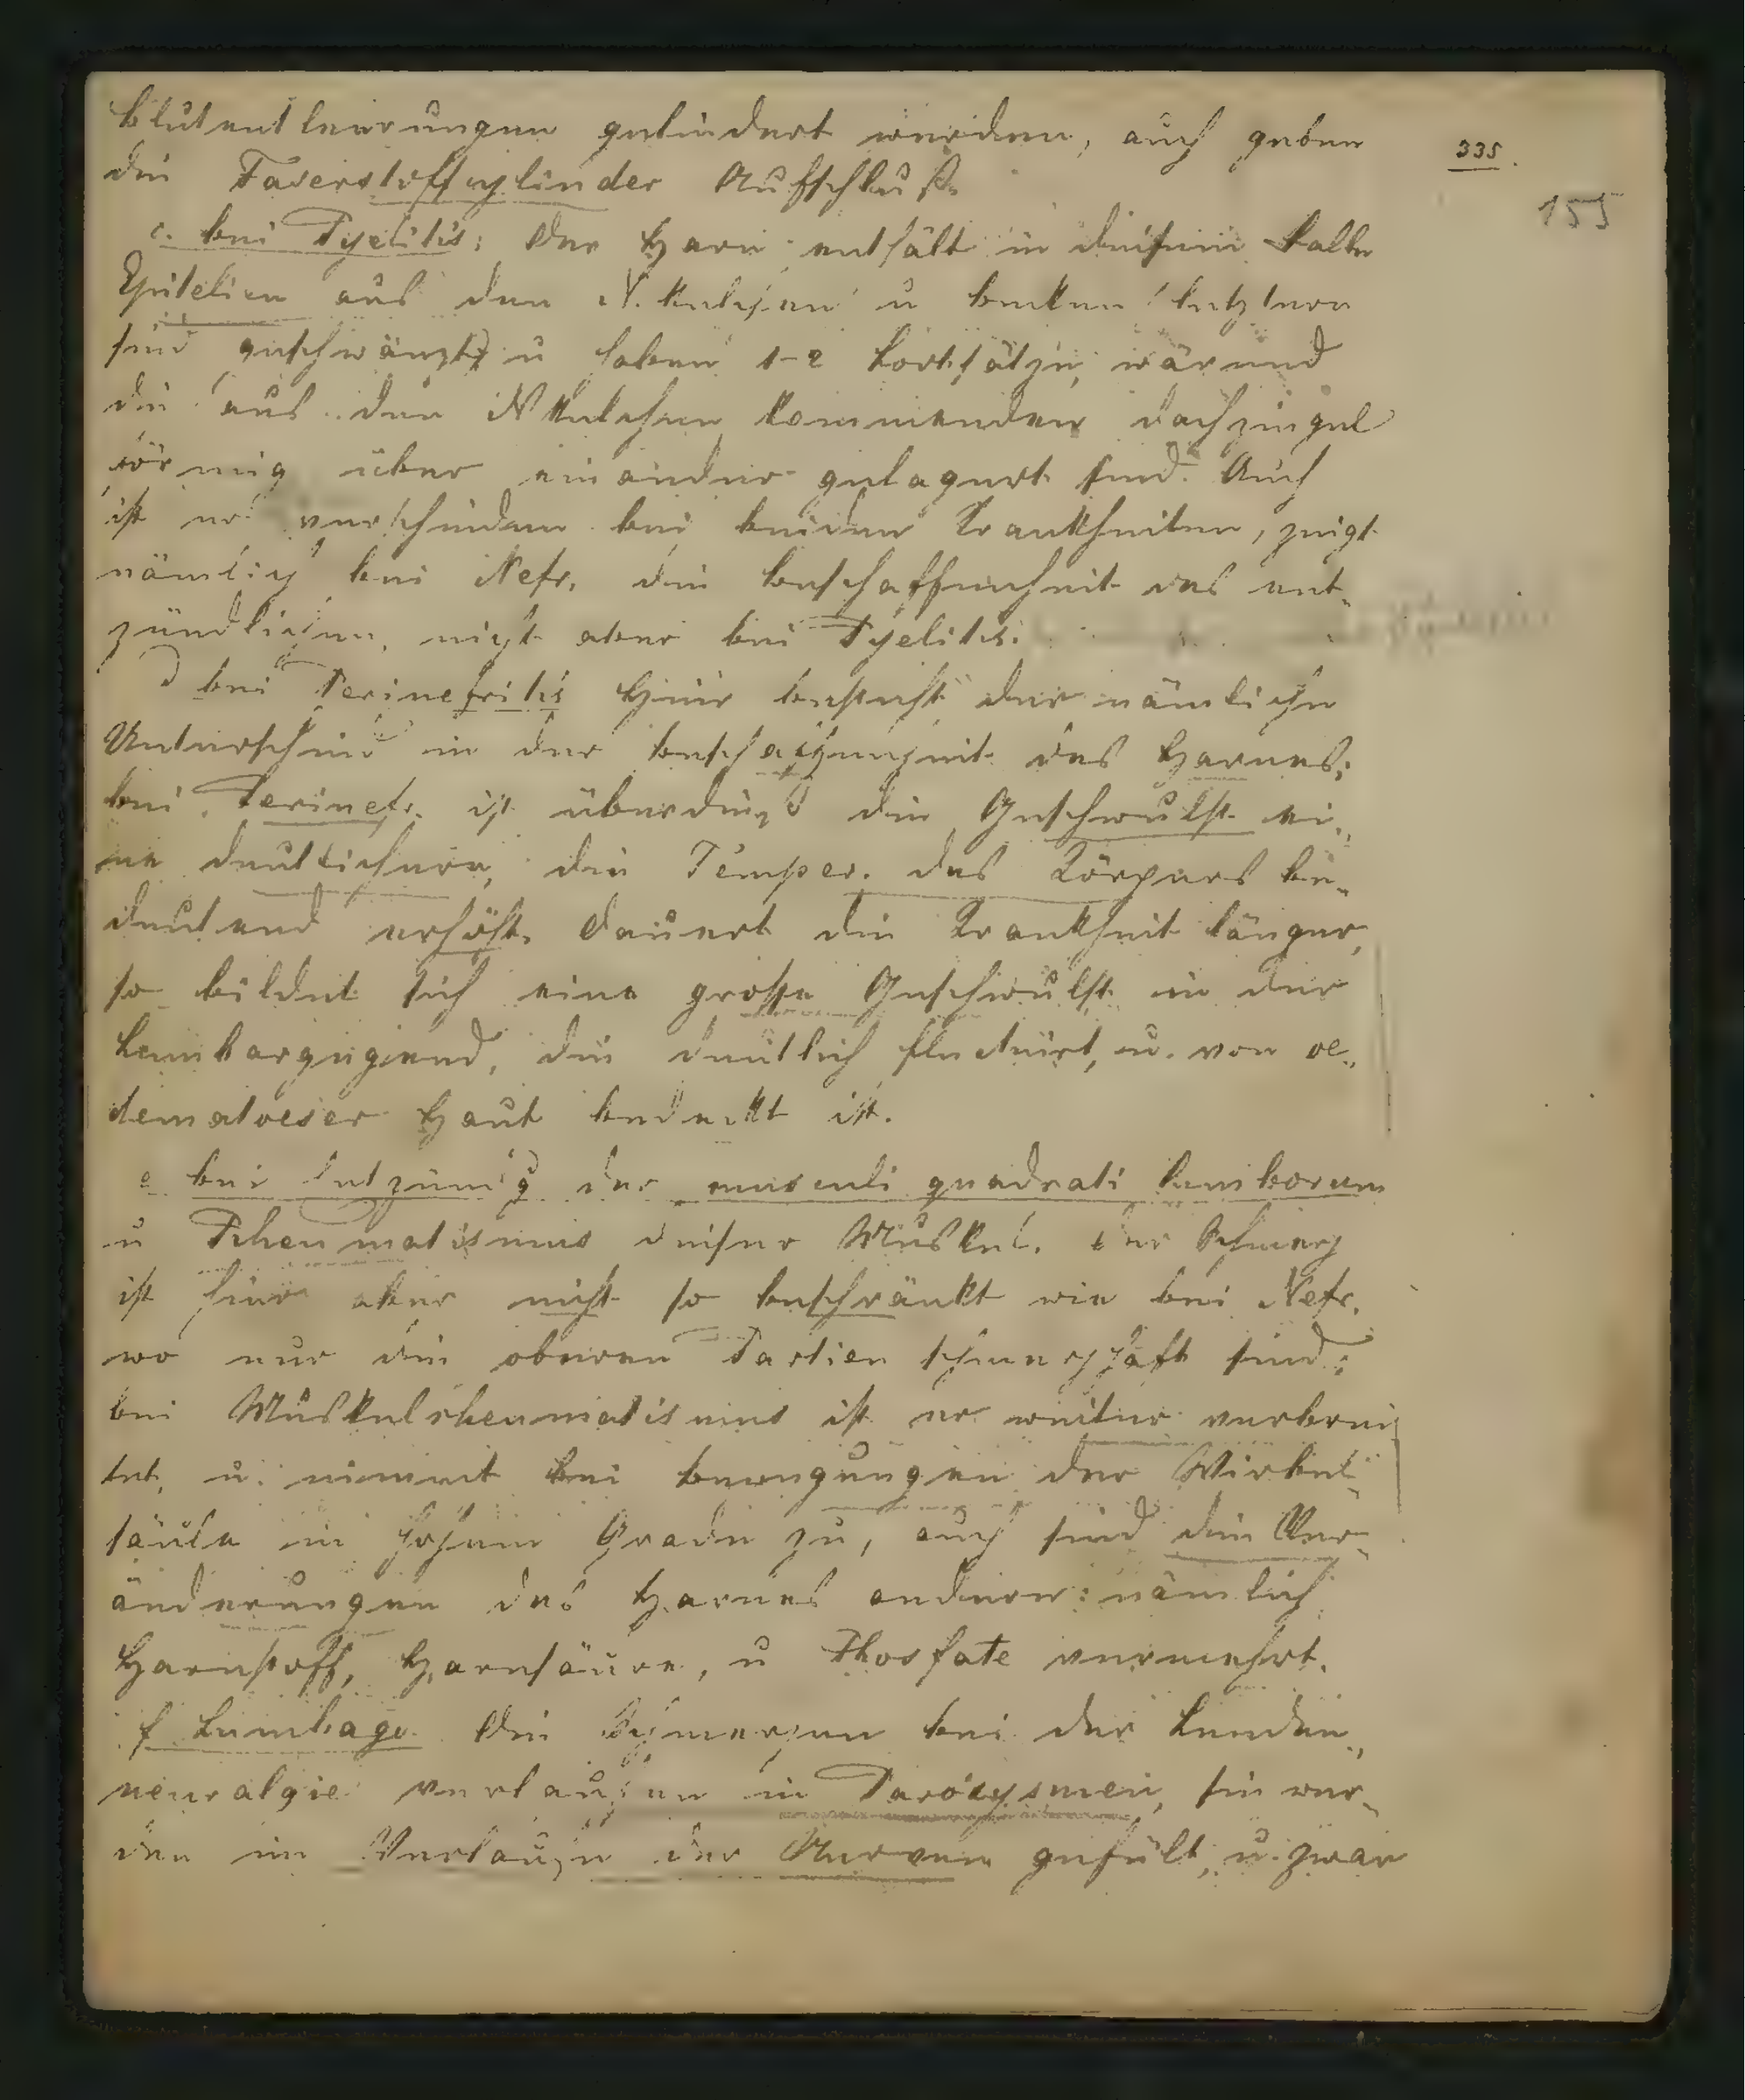 blutentleerungen gelindert werden, auch geben
335.
die Faserstoffcylinder Aufschluß.
155
c. bei Pyelitis: Der Harn enthält in diesem Falle
Epitelien aus den N. Kelchen u becken! letztere
sind geschwänzt u haben 1-2 Fortsätze, wärend
die aus den NKelchen kommenden dachziegel
förmig über einander gelagert sind. Auch
ist er verschieden bei beiden Krankheiten, zeigt
nämlich bei Nefr. die beschaffenheit des ent-
zündlichen, nicht aber bei Pyelitis.
d bei Perinefritis Hier besteht der nämliche
Unterschied in der beschaffenheit des Harnes;
bei Perinefr. ist überdieß die Geschwulst ei-
ne deutlichere, die Temper. des Körpers be-
deutend erhöht. Dauert die Krankheit länger,
so bildet sich eine große Geschwulst in der
Lumbargegend, die deutlich fluctuirt, u. von oe-
dematoeser Haut bedeckt ist.
e bei Entzünd'g der musculi quadrati lumborum
u Rheumatismus dieser Muskel. Der Schmerz
ist hier aber nicht so beschränkt wie bei Nefr.
wo nur die oberen Partien schmerzhaft sind;
bei Muskelrheumatismus ist er weiter verbrei
tet, u. nimmt bei bewegungen der Wirbel-
säule in hohem Grade zu, auch sind die Ver-
änderungen des Harnes andere: nämlich
Harnstoff, Harnsäure, u Phosfate vermehrt.
f Lumbago Die Schmerzen bei der Lenden-
neuralgie verlaufen in Paroxysmen, sie wer-
den im Verlaufe der Nerven gefült, u. zwar